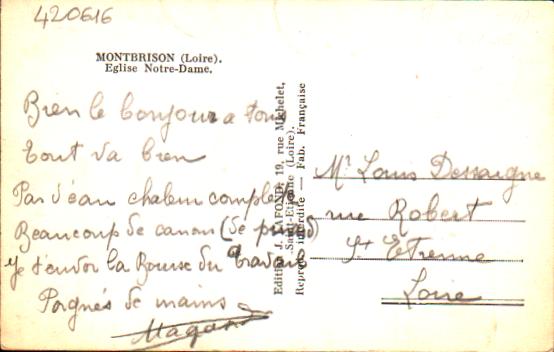 420616
MONTBRISON (Loire).
Eglise Notre-Dame.
Bien le bonjour a tous
tout va bien
Pas d'eau chaleur complète
Beaucoup de canon (de pinard)
la Bourse du travail
Poignés de mains
Magand
Edition J. LAFOND, 19, rue Michelet,
Saint-Etienne (Loire).
Repr. interdite — Fab. Française
Mr Louis Dessaigne
rue Robert
St Etienne
Loire